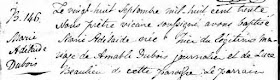 B. 146. Le vingt huit Septembre mil huit cent trente
Nous prêtre vicaire soussigné, avons baptisé
Marie Marie Adelaide née hier du légitime ma-
Adelaide riage de Amable Dubois journalier et de Luce
Dubois Beaulieu de cette paroisse. Le parrain